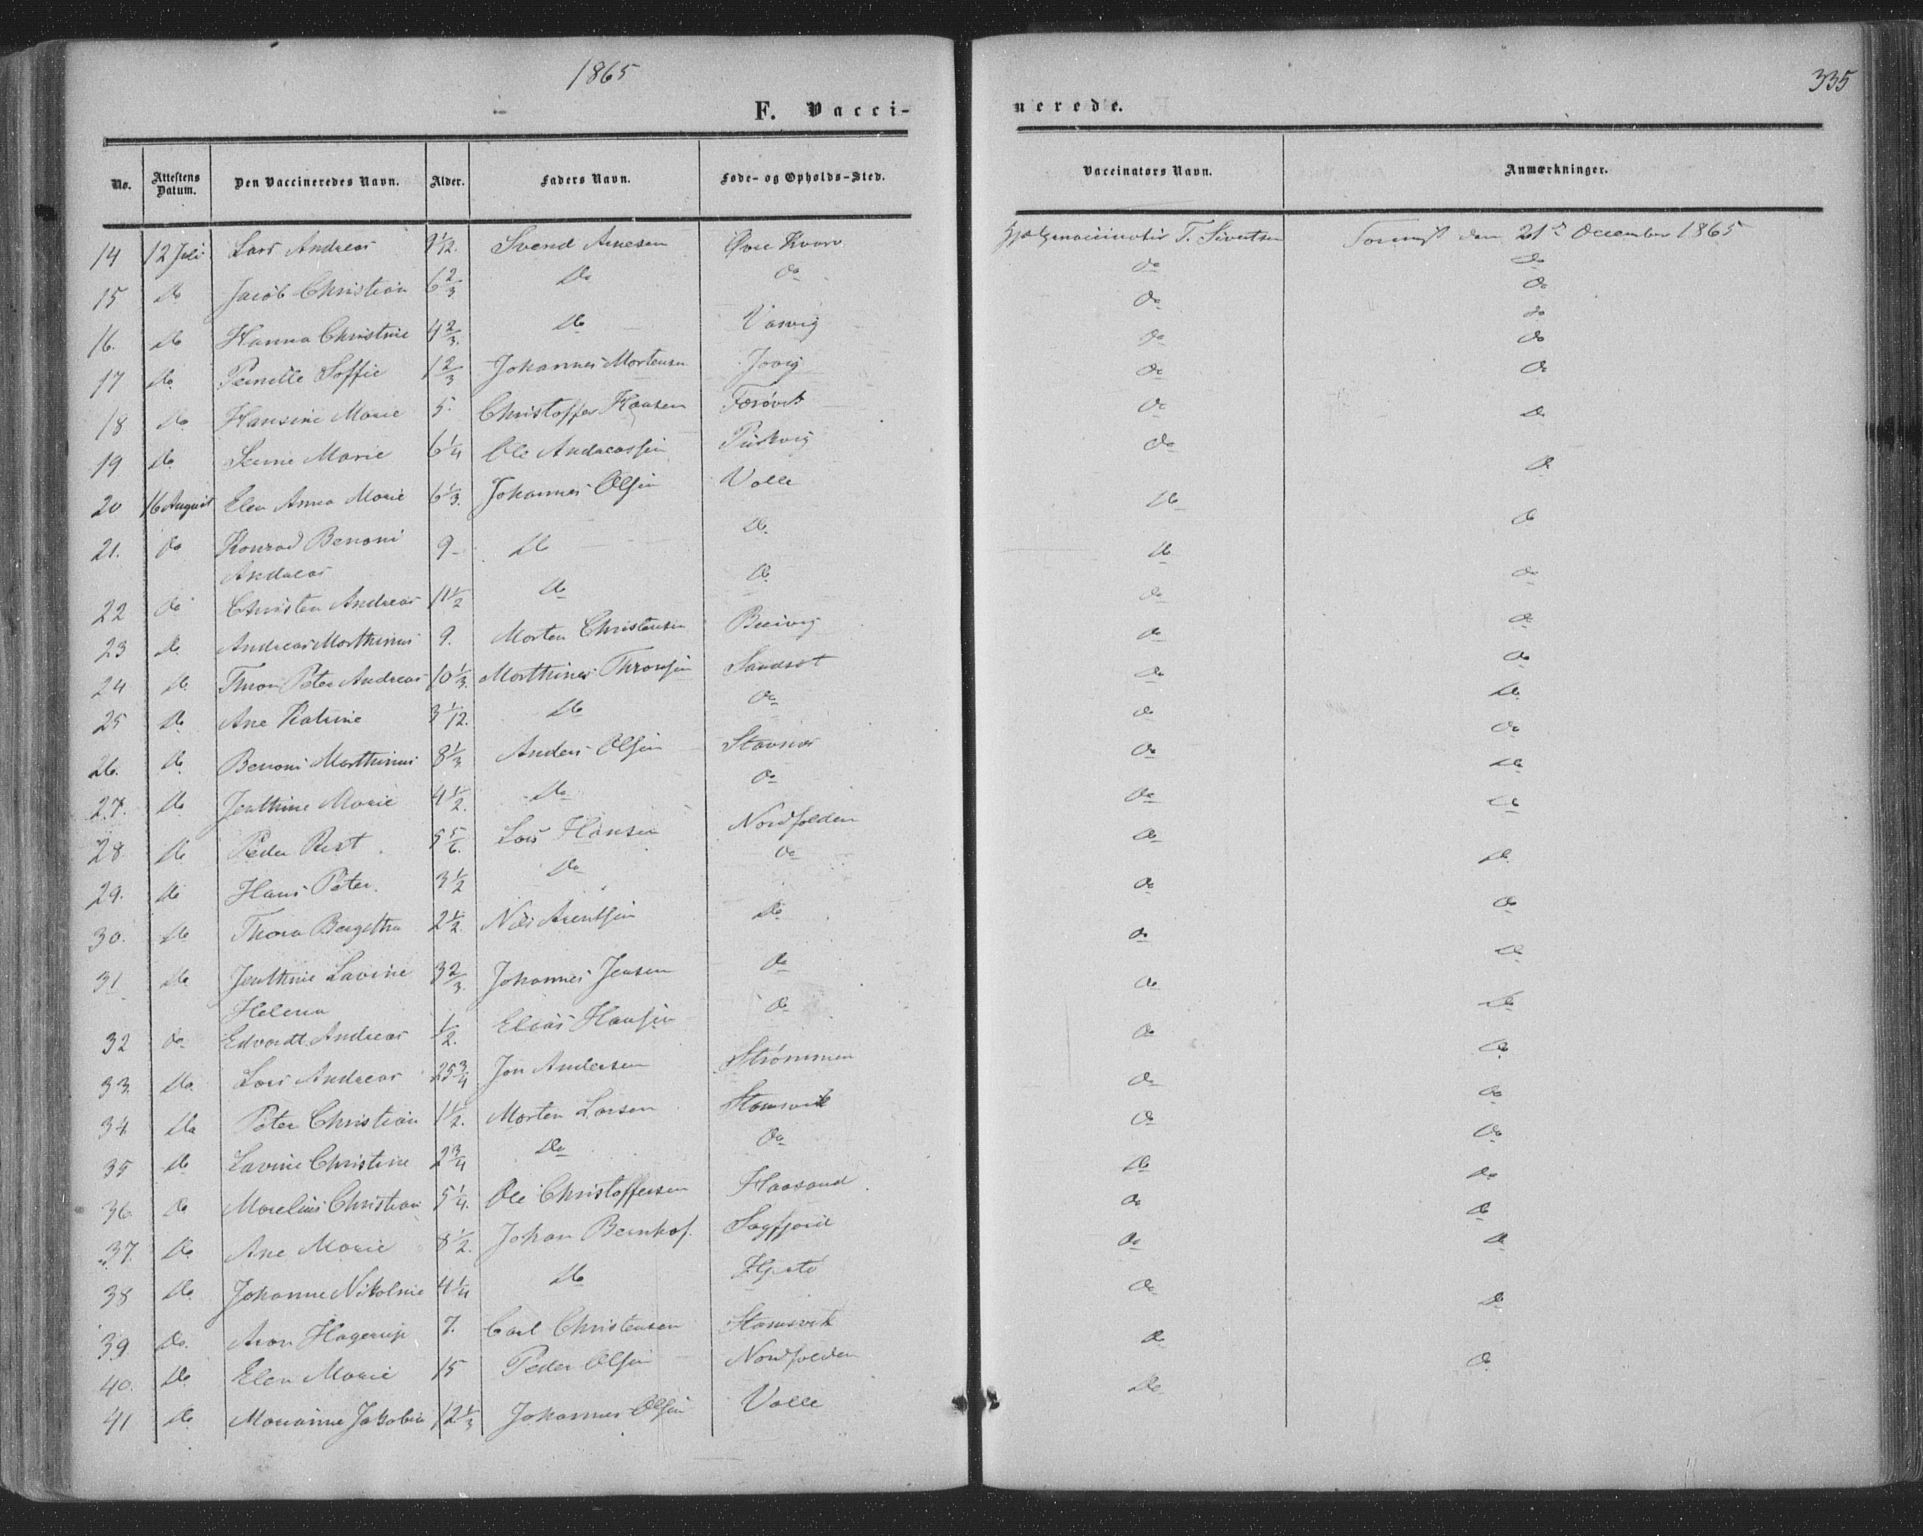 1865
335
F. Vacci-
nerede.
No. Attestens Datum. Den Vaccineredes Navn. Alder. Faders Navn. Føde- og Opholds-Sted. Vaccinators Navn. Anmærkninger.
14 12 Juli Lars Andreas 9 1/12. Svend Arnesen Øvre Kvarv T. Sivertsen den 21de December 1865
15 do Jacob Christian 6 2/3 do do do do
16. do Hanna Christine 4 2/3. do Vasvig do do
17 do Pernille Soffie 1 2/3 Johannes Mortensen Jovig do do
18 do Hansine Marie 5. Christoffer Hansen Færøvik do do
19 do Marie 6 1/4 Ole Andreassen do do
20 16 August Elen Anna Marie 6 1/3. Johannes Olsen Valle do do
21. do Konrad Benoni 9 do do do do
Andreas
22 do Christen Andreas 11 1/2 do do do do
23 do Andreas Morthinus 9. Morten Christensen do do
24 do Thron Peter Andreas 10 1/3. Morthinus Thronsen Sandset do do
25 do Ane Katrine 3 1/12. do do do do
26. do Benoni Morthinus 8 1/3 Anders Olsen Stavnes do do
27. do Jenthine Marie 4 1/2. do do do do
28. do Peder Rist 5 5/6. Lars Hansen Nordfolden do do
29. do Hans Peter. 3 1/2 do do do do
30. do Thora Bergetha 2 1/2. Nils Arentsen do do do
31 do Jenthine Lavine 3 2/3. Johannes Jensen do do do
Helena
32 do Edvardt Andreas 1/2. Elias Hansen do do do
33. do Lars Andreas 25 3/4 Jon Andersen Strømmen do do
34. do Peter Christian 1 1/2. Morten Larsen Stamsvik do do
35 do Lavine Christine 2 3/4 do do do do
36. do Marelius Christian 5 1/4. Ole Christoffersen do do
37. do Ane Marie 8 1/2. Johan Bernhof. Sagfjord do do
38 do Johanne Nikoline 4 1/4 do do do
39 do. Aron Hagerup 7. Carl Christensen Stamsvik do do
40. do Elen Marie 15 Peder Olsen Nordfolden do do
41 do Marianne Jakobia 12 1/3 Johannes Olsen Valle do